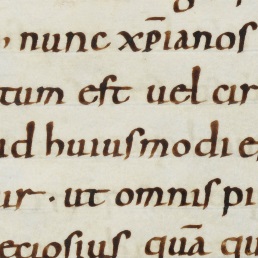 , nunc xp̄ianos
tum est uel cir
ud huiusmodi e
ur · ut omnis pi
eciosius quā qu